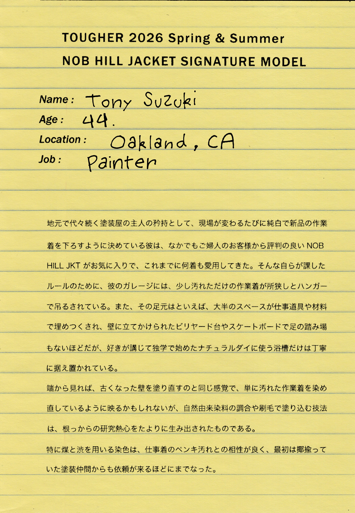 TOUGHER 2026 Spring & Summer
NOB HILL JACKET SIGNATURE MODEL
Name : Tony Suzuki
Age : 44.
Location : Oakland, CA
Job : Painter
地元で代々続く塗装屋の主人の矜持として、現場が変わるたびに純白で新品の作業
着を下ろすように決めている彼は、なかでもご婦人のお客様から評判の良い NOB
HILL JKT がお気に入りで、これまでに何着も愛用してきた。そんな自らが課した
ルールのために、彼のガレージには、少し汚れただけの作業着が所狭しとハンガー
で吊るされている。また、その足元はといえば、大半のスペースが仕事道具や材料
で埋めつくされ、壁に立てかけられたビリヤード台やスケートボードで足の踏み場
もないほどだが、好きが講じて独学で始めたナチュラルダイに使う浴槽だけは丁寧
に据え置かれている。
端から見れば、古くなった壁を塗り直すのと同じ感覚で、単に汚れた作業着を染め
直しているように映るかもしれないが、自然由来染料の調合や刷毛で塗り込む技法
は、根っからの研究熱心をたよりに生み出されたものである。
特に煤と渋を用いる染色は、仕事着のペンキ汚れとの相性が良く、最初は揶揄って
いた塗装仲間からも依頼が来るほどにまでなった。